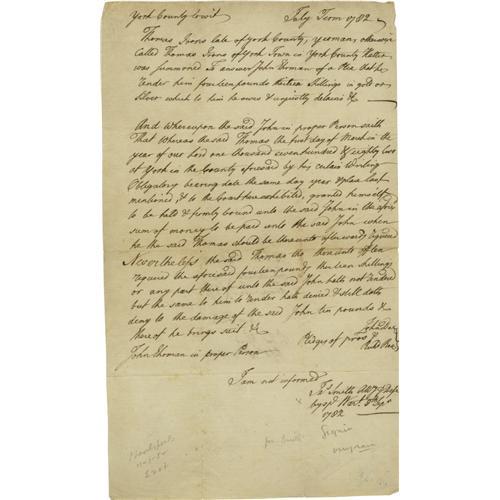 York County to wit July Term 1782
Thomas Irons late of York County, yeoman, otherwise
Called Thomas Irons of York Town in York County Hatter
was summoned to answer John Thomas of a Plea that he
render him fourteen pounds thirteen Shillings in gold or
Silver which to him he owes & unjustly detains &c
And whereupon the said John in proper Person saith
That whereas the said Thomas the first day of March in the
year of our Lord one thousand seven hundred & eighty two
at York in the County aforesaid by his certain Writing
Obligatory bearing date the same day year & place last
mentioned, & to the Court here exhibited, granted himself
to be held & firmly bound unto the said John in the afsd
sum of money to be paid unto the said John when
he the said Thomas should be thereunto afterwards required
Nevertheless the said Thomas tho thereunto often
required the aforesaid fourteen pounds thirteen shillings
or any part thereof unto the said John hath not rendered
but the same to him to render hath denied & still doth
deny to the damage of the said John ten pounds &
thereof he brings suit &c
Pledges of pros
John Doe
Richd Roe
John Thomas in proper Person
I am not informed
Jas Smith Atty
1782